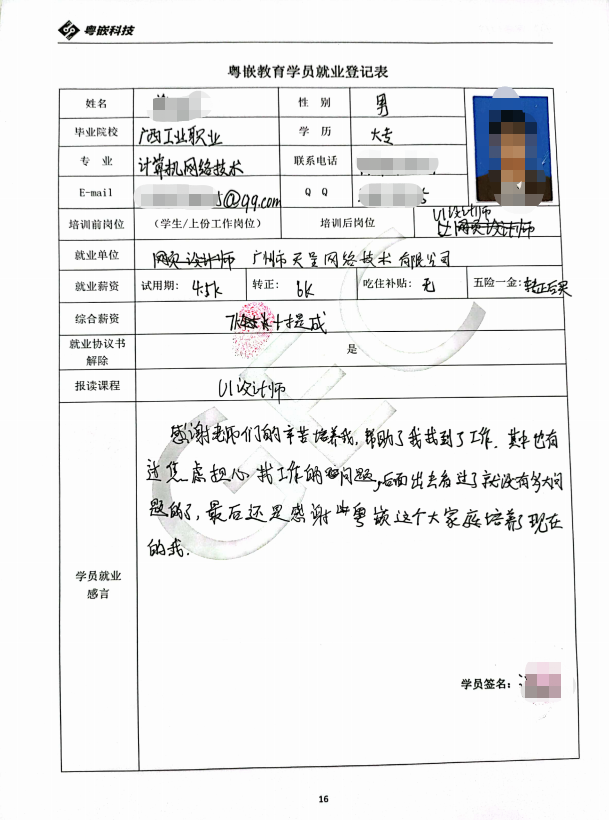 粤嵌科技
粤嵌教育学员就业登记表
姓名 性 别 男
毕业院校 广西工业职业 学 历 大专
专 业 计算机网络技术 联系电话
E-mail 5@qq.com Q Q 5
培训前岗位 (学生/上份工作岗位) 培训后岗位 UI设计师
网页设计师
就业单位 网页设计师 广州市天呈网络技术有限公司
就业薪资 试用期: 4.5k 转正: 6k 吃住补贴: 无 五险一金: 转正后买
综合薪资 7k +提成
就业协议书
解除
是
报读课程 UI设计师
感谢老师们的辛苦培养我,帮助了我找到了工作.其中也有
过焦虑担心找工作的问题,后面出去看过了就没有多大问
题的了,最后还是感谢粤嵌这个大家庭培养了现在
的我.
学员就业
感言
学员签名:
GEC
16